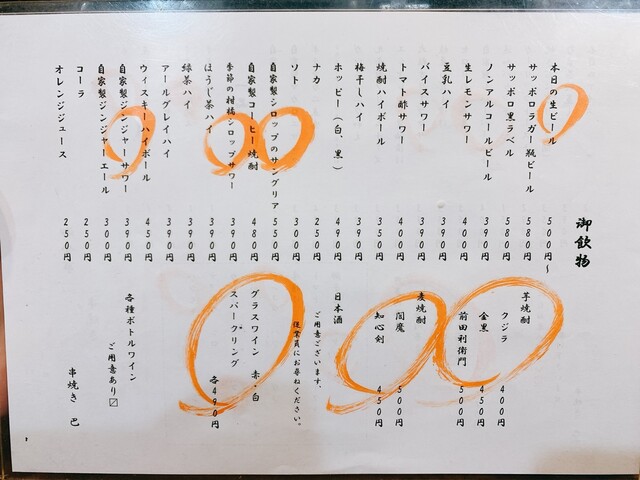 御飲物
本日の生ビール 500円〜
サッポロラガー瓶ビール 580円
サッポロ黒ラベル 580円
ノンアルコールビール 390円
生レモンサワー 400円
豆乳ハイ 390円
バイスサワー 390円
トマト酢サワー 400円
焼酎ハイボール 350円
梅干しハイ 390円
ホッピー（白、黒） 490円
ナカ 250円
ソト 300円
自家製シロップのサングリア 550円
自家製コーヒー焼酎 480円
季節の柑橘シロップサワー 390円
ほうじ茶ハイ 390円
緑茶ハイ 390円
アールグレイハイ 390円
ウィスキーハイボール 450円
自家製ジンジャーサワー 390円
自家製ジンジャーエール 300円
コーラ 250円
オレンジジュース 250円
芋焼酎
クジラ 400円
金黒 450円
前田利衛門 500円
麦焼酎
閻魔 500円
知心剣 450円
日本酒
ご用意ございます。
従業員にお尋ねください。
グラスワイン 赤・白
スパークリング 各490円
各種ボトルワイン
ご用意あり〼
串焼き 巴